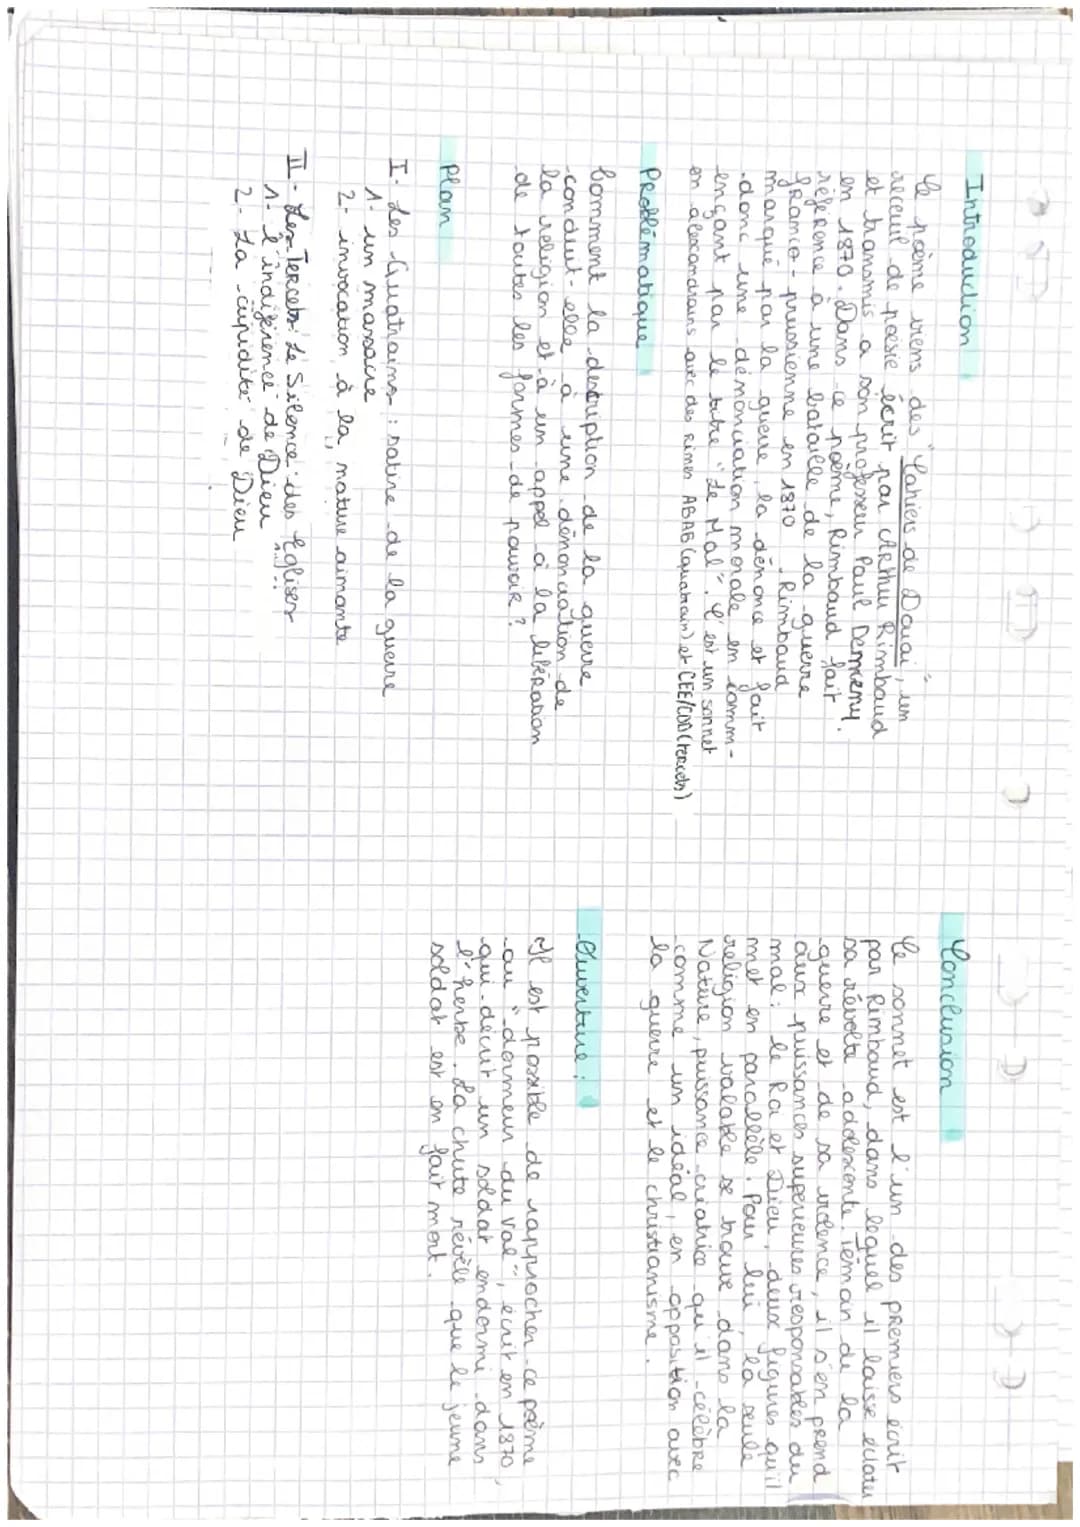 Introduction
Ce poème viens des "Cahiers de Douai", un
receuil de poésie écrit par Arthur Rimbaud
et transmis a son professeur Paul Demeny
en 1870. Dans ce poème, Rimbaud fait
référence à une bataille de la guerre
franco-prussienne en 1870. Rimbaud
marqué par la guerre, la dénonce et fait
donc une dénonciation morale en comm-
ençant par le titre "Le Mal". C'est un sonnet
en alexandrains avec des rimes ABAB (quatrain) et CEE/CDD (tercets)
Problématique
Comment la description de la guerre
conduit-elle à une dénonciation de
la religion et à un appel à la libération
de toutes les formes de pouvoir ?
Plan
I- Les Quatrains : satire de la guerre
1- un massacre
2- invocation à la nature aimante
II- Les Tercets: Le Silence des Eglises
1- l'indigérence de Dieu
2- La cupidité de Dieu
Conclusion
Ce sonnet est l'un des premiers écrit
par Rimbaud, dans lequel il laisse éclater
sa révolte adolescente. Témoin de la
guerre et de sa violence, il s'en prend
aux puissances superieures responsables du
mal : le Roi et Dieu, deux figures qu'il
met en parallèle. Pour lui, la seule
religion valable se trouve dans la
Nature, puissance créatrice qu'il célèbre
comme un idéal, en opposition avec
la guerre et le christianisme.
Ouverture :
Il est possible de rapprocher ce poème
au "dormeur du val", écrit en 1870,
qui décrit un soldat endormi dans
l'herbe. La chute révèle que le jeune
soldat est en fait mort.